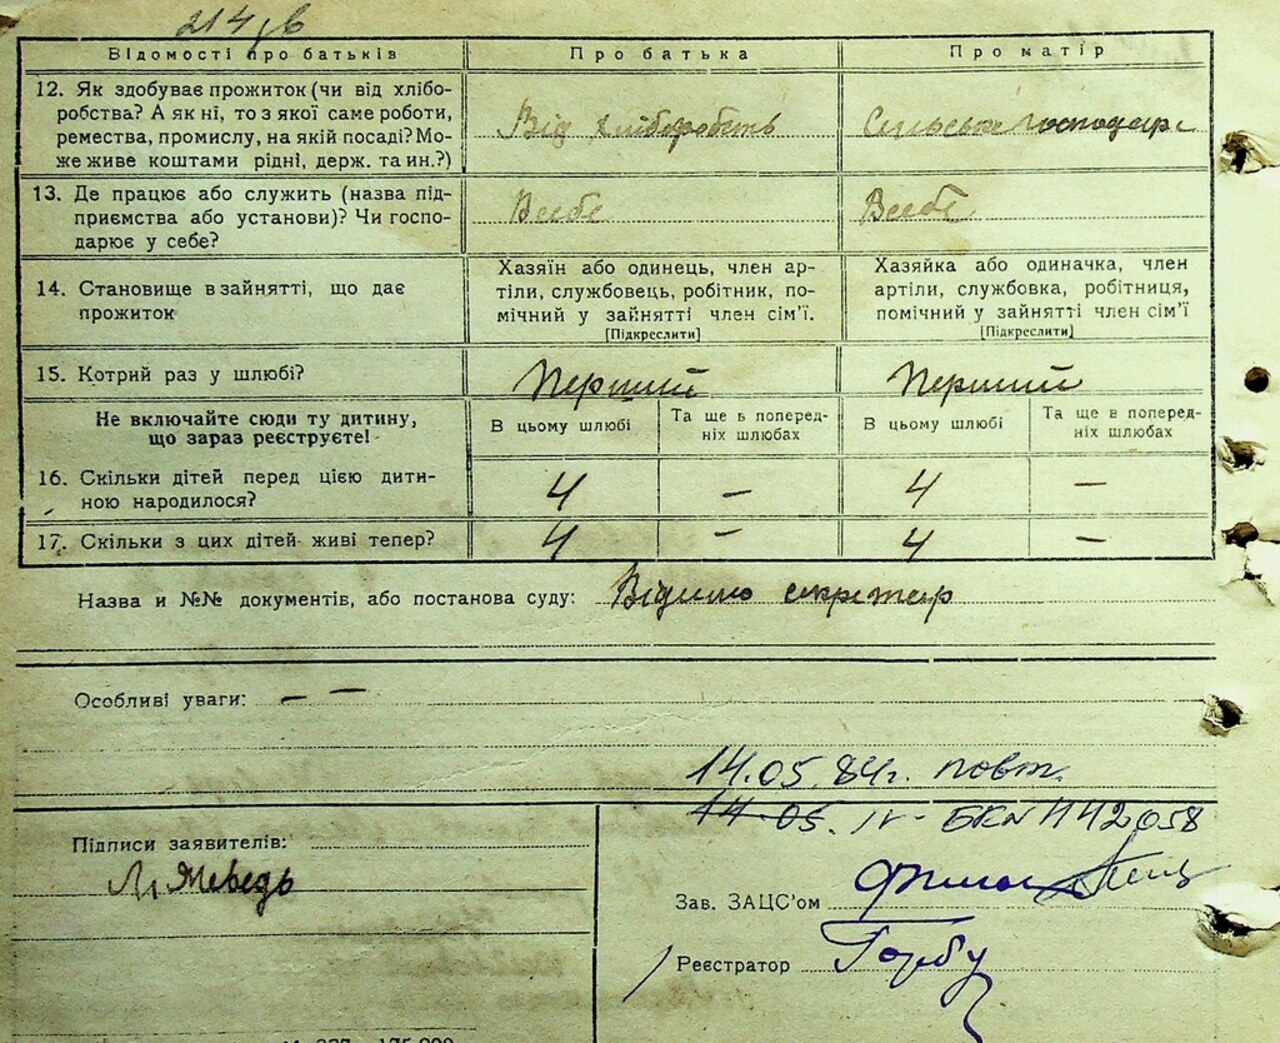 214 зв
Відомості про батьків Про батька Про матір
12. Як здобуває прожиток (чи від хлібо-
робства? А як ні, то з якої саме роботи,
ремества, промислу, на якій посаді? Мо-
же живе коштами рідні, держ. та ин.?)
Від хліборобств Сильська господар
13. Де працює або служить (назва під-
приємства або установи)? Чи госпо-
дарює у себе?
Всебе Всебе
14. Становище в зайнятті, що дає
прожиток
Хазяїн або одинець, член ар-
тіли, службовець, робітник, по-
мічний у зайнятті член сім'ї.
[Підкреслити]
Хазяйка або одиначка, член
артіли, службовка, робітниця,
помічний у зайнятті член сім'ї
[Підкреслити]
15. Котрий раз у шлюбі? Перший Перший
Не включайте сюди ту дитину,
що зараз реєструєте!
В цьому шлюбі
Та ще в поперед-
ніх шлюбах
В цьому шлюбі
Та ще в поперед-
ніх шлюбах
16. Скільки дітей перед цією дити-
ною народилося?
4 — 4 —
17. Скільки з цих дітей живі тепер? 4 — 4 —
Назва и №№ документів, або постанова суду: Відимо секретар
Особливі уваги: — —
14.05.84г. повт.
14.05. ІV-БК N 442058
Підписи заявителів:
Медведь
Зав. ЗАЦС'ом
Реєстратор Горбу
175.000